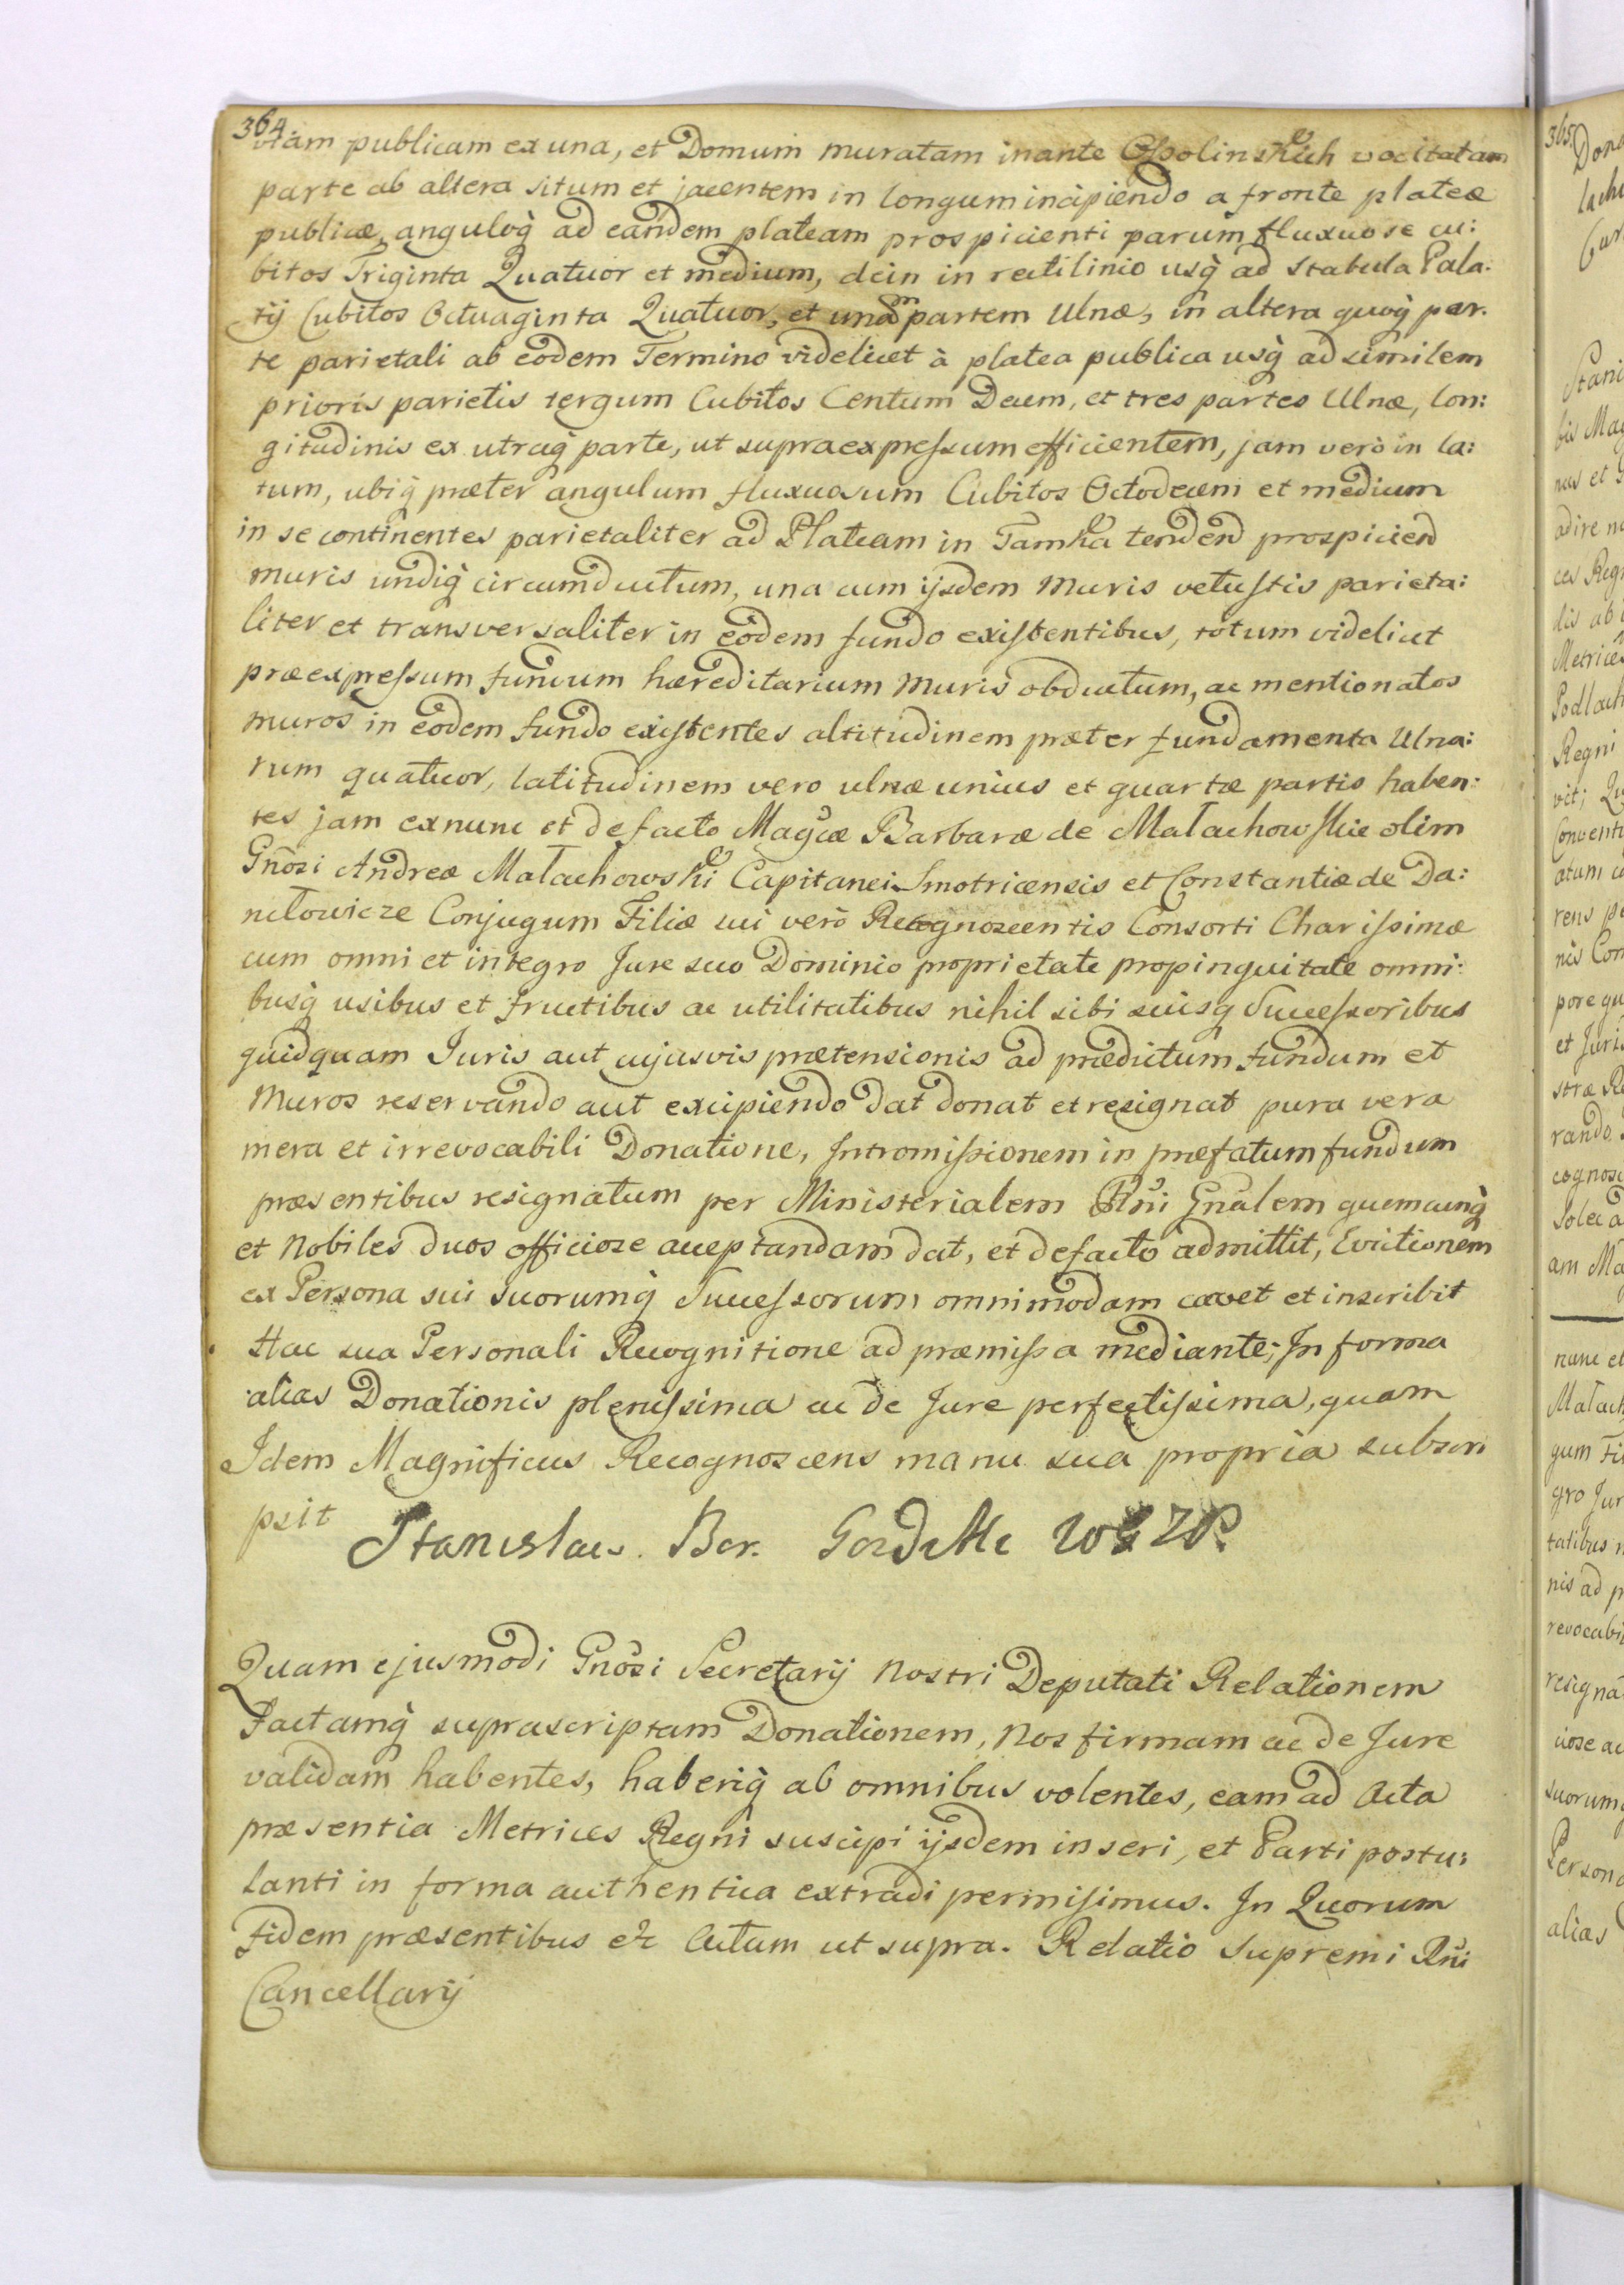 364.
viam publicam ex una, et Domum muratam inante Ossolinskich vocitatam
parte ab altera situm et jacentem in longum incipiendo a fronte plateæ
publicæ, anguloq̀ ad eandem plateam prospicienti parum fluxuose cu:
bitos Triginta Quatuor et medium, dein in rectilinio usq̀ ad stabula Pala:
tij Cubitos Octuaginta Quatuor, et unam partem Ulnæ, in altera quoq̀ par:
te parietali ab eodem Termino videlicet à platea publica usq̀ ad similem
prioris parietis tergum Cubitos Centum Decem, et tres partes Ulnæ, lon:
gitudinis ex utraq̀ parte, ut supra expressum efficientem, jam verò in la:
tum, ubiq̀ præter angulum fluxuosum Cubitos Octodecem et medium
in se continentes parietaliter ad Plateam in Tamka tendend prospiciend
muris undiq̀ circumductum, una cum ijsdem Muris vetustis parieta:
liter et transversaliter in eodem fundo existentibus, totum videlicet
præexpressum fundum hæreditarium Muris obductum, ac mentionatos
muros in eodem fundo existentes altitudinem præter fundamenta Ulna:
rum quatuor, latitudinem vero ulnæ unius et quartæ partis haben:
tes jam exnunc et defacto Magcæ Barbaræ de Małachowskie olim
Gnosi Andreæ Małachowski Capitanei Smotricensis et Constantiæ de Da:
niłowicze Conjugum Filiæ sui verò Recognoscentis Consorti Charissimæ
cum omni et integro Jure suo Dominio proprietate propinquitate omni:
busq̀ usibus et fructibus ac utilitatibus nihil sibi suisq̀ Successoribus
quidquam Iuris aut cujusvis prætensionis ad prædictum fundum et
Muros reservando aut excipiendo dat donat et resignat pura vera
mera et irrevocabili Donatione, Intromissionem in præfatum fundum
præsentibus resignatum per Ministerialem Rñi Gnalem quemcunq̀
et Nobiles duos officiose acceptandam dat, et defacto admittit, Evictionem
ex Persona sui suorumq̀ Successorum omnimodam cavet et inscribit
Hac sua Personali Recognitione ad præmissa mediante; In forma
alias Donationis plenissima ac de Jure perfectissima, quam
Idem Magnificus Recognoscens manu sua propria subscri
psit Stanislaus
Quam ejusmodi Gnosi Secretarij Nostri Deputati Relationem
Factamq̀ suprascriptam Donationem, Nos firmam ac de Jure
validam habentes, haberiq̀ ab omnibus volentes, eam ad Acta
præsentia Metrices Regni suscipi ijsdem inseri, et Parti postu:
lanti in forma authentica extradi permisimus. In Quorum
Fidem præsentibus &c Actum ut supra. Relatio Supremi Rñi
Cancellarij